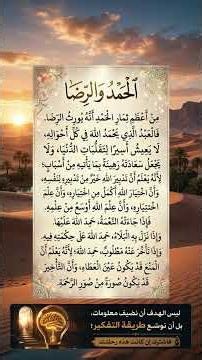 الْحَمْدُ وَالرِّضَا
مِنْ أَعْظَمِ ثِمَارِ الْحَمْدِ أَنَّهُ يُورِثُ الرِّضَا.
فَالْعَبْدُ الَّذِي يَحْمَدُ اللهَ فِي كُلِّ أَحْوَالِهِ،
لَا يَعِيشُ أَسِيرًا لِتَقَلُّبَاتِ الدُّنْيَا، وَلَا
يَجْعَلُ سَعَادَتَهُ رَهِينَةً بِمَا يَأْتِيهِ مِنْ أَسْبَابٍ؛
لِأَنَّهُ يَعْلَمُ أَنَّ تَدْبِيرَ اللهِ خَيْرٌ مِنْ تَدْبِيرِهِ لِنَفْسِهِ،
وَأَنَّ اخْتِيَارَ اللهِ أَكْمَلُ مِنِ اخْتِيَارِهِ، وَأَنَّ عِلْمَ
اللهِ أَوْسَعُ مِنْ عِلْمِهِ.
فَإِذَا جَاءَتْهُ النِّعْمَةُ، حَمِدَ اللهَ عَلَيْهَا،
وَإِذَا نَزَلَ بِهِ الْبَلَاءُ، حَمِدَ اللهَ عَلَى حِكْمَتِهِ فِيهِ،
وَإِذَا تَأَخَّرَ عَنْهُ مَطْلُوبٌ، حَمِدَ اللهَ؛ لِأَنَّهُ يَعْلَمُ أَنَّ
الْمَنْعَ قَدْ يَكُونُ عَيْنَ الْعَطَاءِ، وَأَنَّ التَّأْخِيرَ
قَدْ يَكُونُ صُورَةً مِنْ صُوَرِ الرَّحْمَةِ.
ليس الهدف أن نضيف معلومات،
بل أن نوسّع طريقة التفكير؛